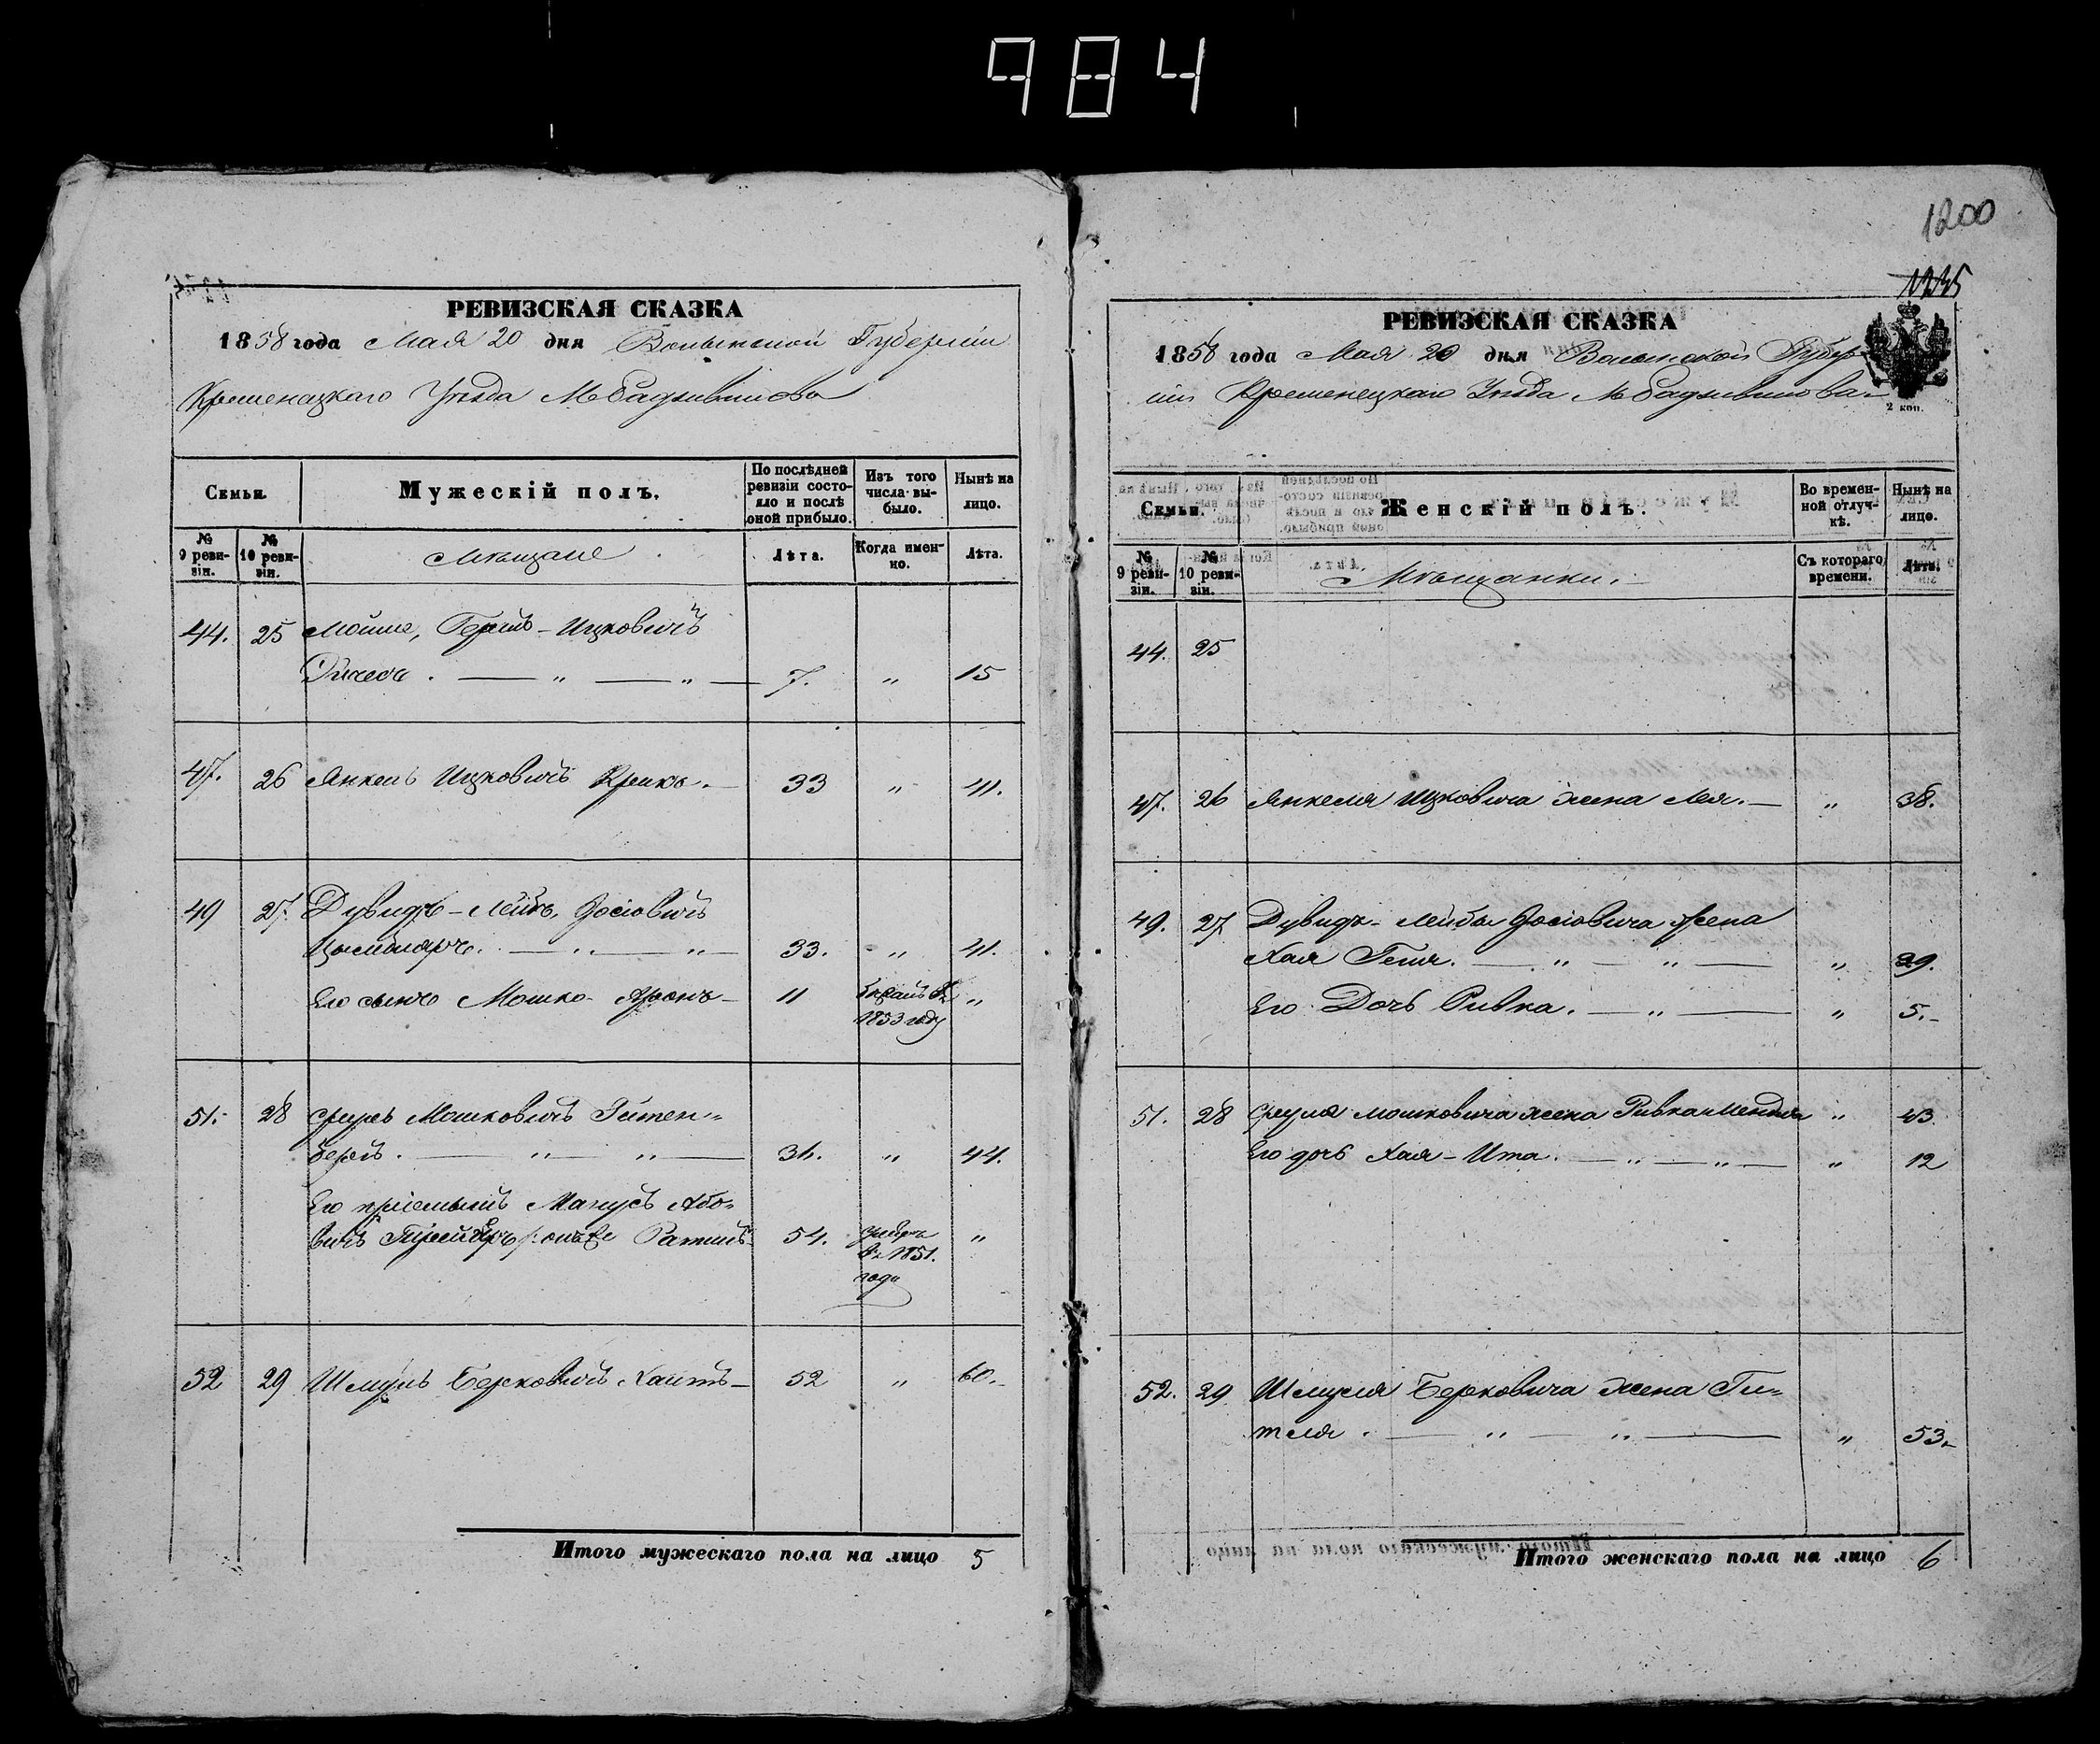 984
1200
1235
РЕВИЗСКАЯ СКАЗКА
1858 года Мая 20 дня Волынской Губерніи
Кременецкаго Уѣзда М. Радзивилова
Семьи.
Мужескій полъ.
По послѣдней ревизіи состояло и послѣ оной прибыло.
Изъ того числа выбыло.
Нынѣ на лицо.
№ 9 ревизіи.
№ 10 ревизіи.
Мѣщане
Лѣта.
Когда именно.
Лѣта.
44. 25 Мошко, Гершъ-Ицковичъ
7. " 15
47. 26 Янкель Ицковичъ Крикъ. 33 " 41.
49 27. Дувидъ-Лейба Іосіовичъ
33. " 41.
Его сынъ Мошко-Аронъ 11 1853 году "
51. 28 Сруль Мошковичъ Гитен-
берѣъ. " " 36. " 44.
Его пріемышъ Манусъ Або-
вичъ 54. умеръ въ 1851. году "
52 29 Шмуль Берковичъ 52 " 60.
Итого мужескаго пола на лицо 5
РЕВИЗСКАЯ СКАЗКА
1858 года Мая 20 дня Волынской Губер-
ніи Кременецкаго Уѣзда М. Радзивилова
2 коп.
Семьи.
Женскій полъ.
Во временной отлучкѣ.
Нынѣ на лицо.
№ 9 ревизіи.
№ 10 ревизіи.
Мѣщанки.
Съ котораго времени.
Лѣта.
44. 25
47. 26 Янкеля Ицковича жена Лея. " 38.
49. 27 Дувидъ-Лейбы Іосіовича жена
Хая Геня. " " " 39.
Его Дочь Ривка. " " 5.
51. 28 Сруля Мошковича жена Ривка " 43.
Его дочь Хая-Ита. " " " 12
52. 29 Шмуля Берковича жена Ги-
теля. " " " 53.
Итого женскаго пола на лицо 6